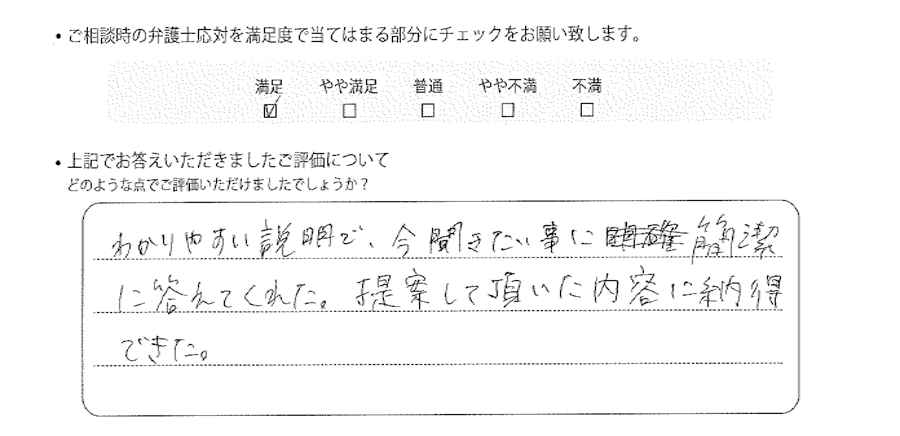 ・ご相談時の弁護士応対を満足度で当てはまる部分にチェックをお願い致します。
満足 やや満足 普通 やや不満 不満
☑ □ □ □ □
・上記でお答えいただきましたご評価について
どのような点でご評価いただけましたでしょうか？
わかりやすい説明で、今聞きたい事に簡潔
に答えてくれた。提案して頂いた内容に納得
できた。